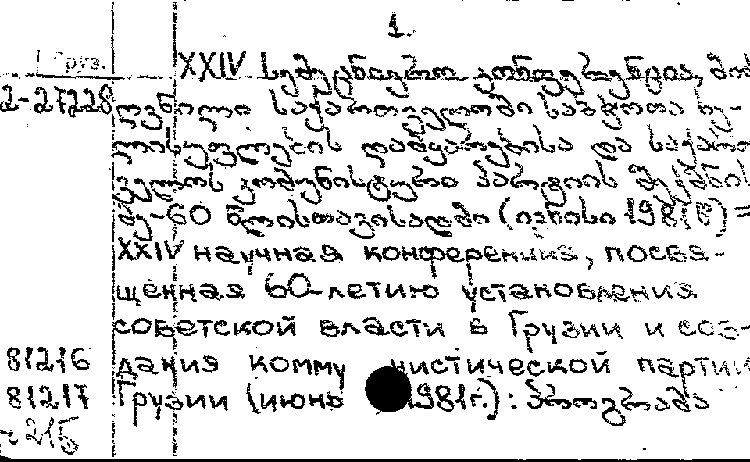 1.
Груз. XXIV სამეცნიერო კონფერენცია, მი-
2-27228 ღვნილი საქართველოში საბჭოთა ხე-
ლისუფლების დამყარებისა და საქართ
ველოს კომუნისტური პარტიის შექმნის
მე-60 წლისთავისადმი (ივნისი 1981წ) =
XXIV научная конференция, посвя-
щенная 60-летию установления
советской власти в Грузии и соз-
81216 дания комму нистической партии
81217 Грузии (июнь 1981г.): პროგრამა
215